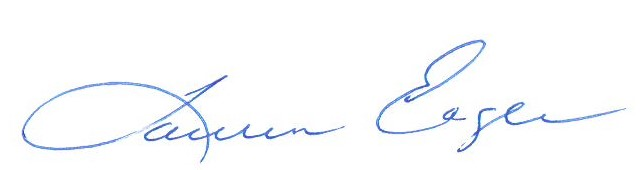 Lauren Eagen